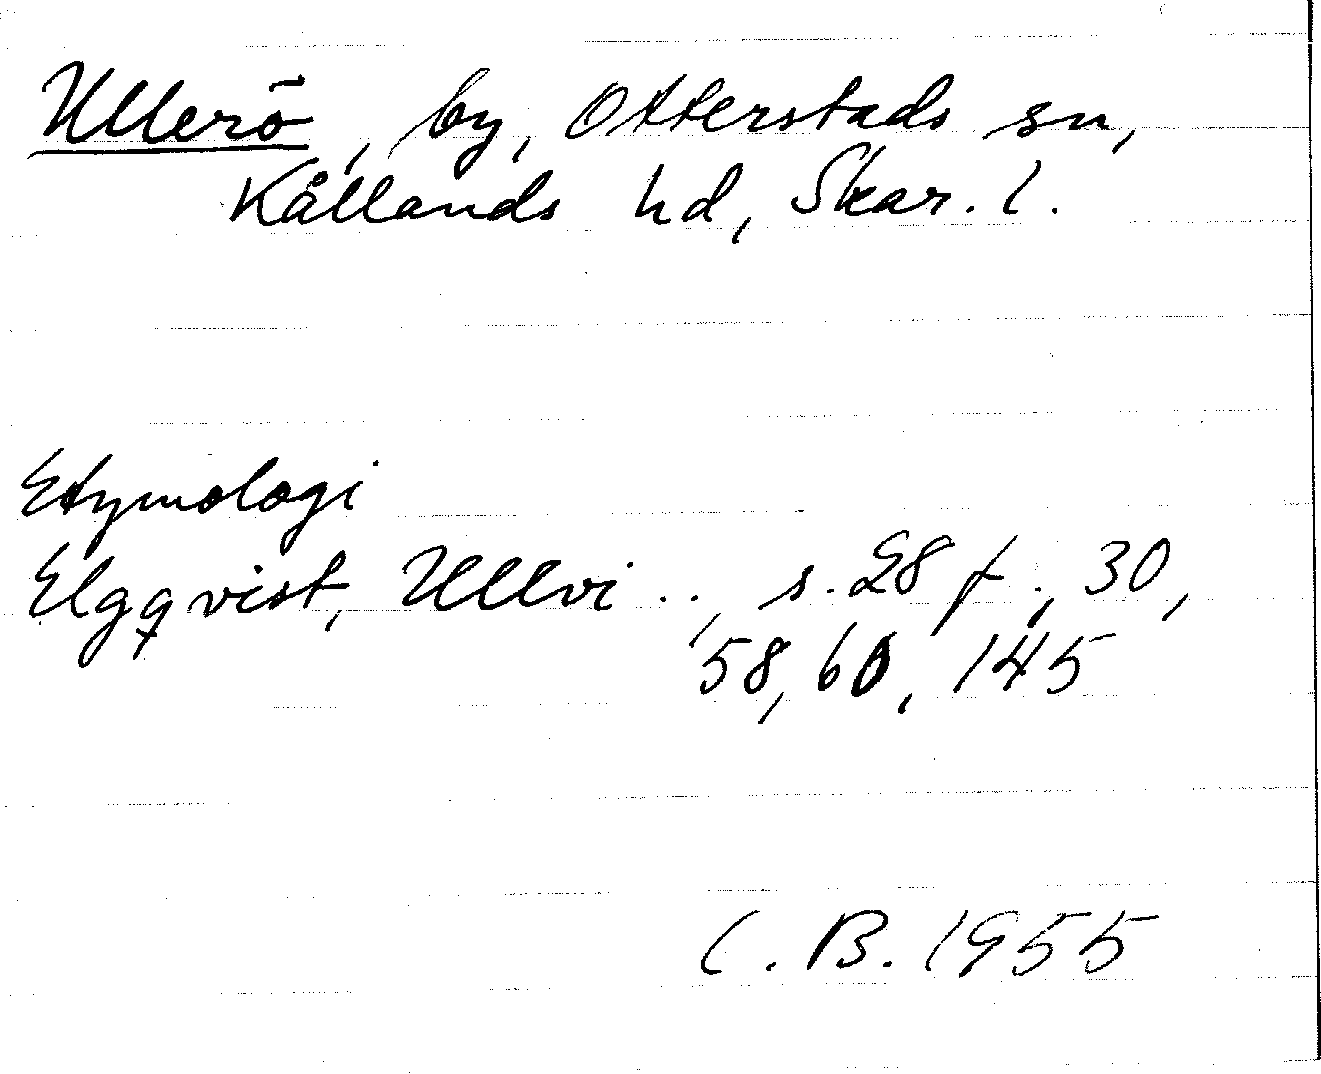 Ullerö, by, Otterstads sn,
Kållands hd, Skar. l.
Etymologi
Elgqvist, Ullvi .., s. 28 f., 30,
58, 60, 145
C. B. 1955